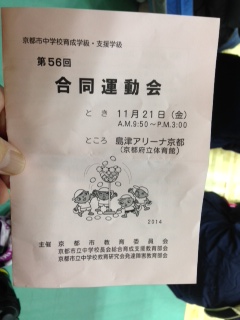 京都市中学校育成学級・支援学級
第56回
合同運動会
とき 11月21日(金)
A.M.9:50~P.M.3:00
ところ 島津アリーナ京都
(京都府立体育館)
2014
主催 京都市教育委員会
京都市立中学校長会総合育成支援教育部会
京都市立中学校教育研究会発達障害教育部会